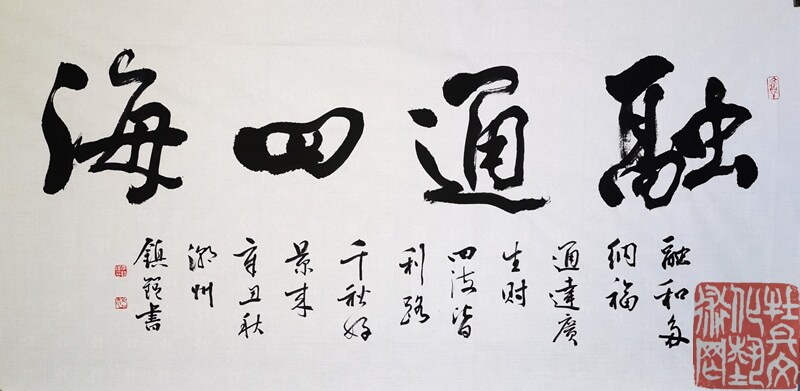 融通四海
融和多
纳福
通達廣
生财
四海皆
利路
千秋好
景来
辛丑秋
潮州
鎮
書